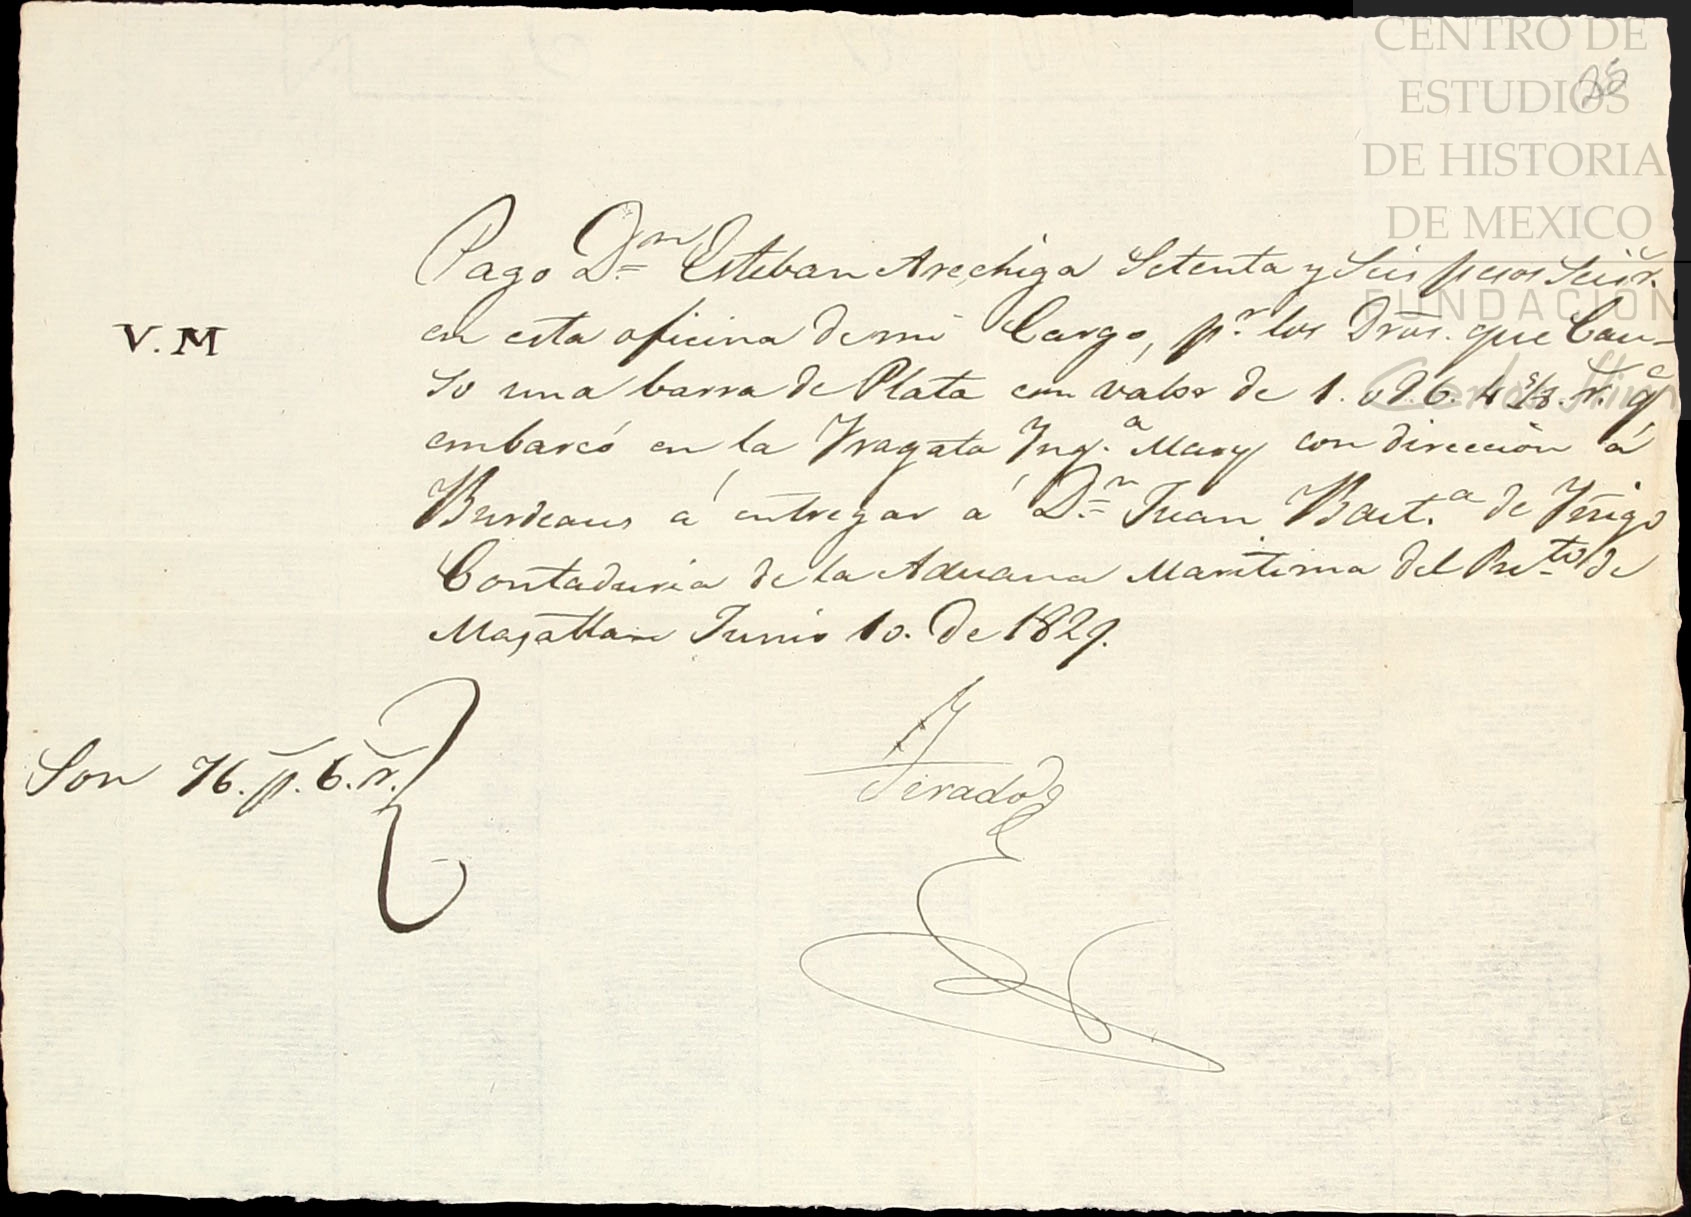 CENTRO DE
ESTUDIOS
DE HISTORIA
DE MEXICO
FUNDACIÓN
Carlos Slim
28
Pago Dⁿ Esteban Arechiga Setenta y Seis pesos Seis r.
V.M
en esta oficina de mi Cargo, pʳ los Dros. que Cau-
so una barra de Plata con valor de 1.096.4 5/8. r. qᵉ
embarcó en la Fragata Ingᵃ Mary con direccion á
Burdeaus á entregar á Dⁿ Juan Baut.ᵃ de Yñigo
Contaduria de la Aduana Maritima del Puᵗᵒ de
Mazatlan Junio 10. de 1829.
Son 76. p. 6. r.